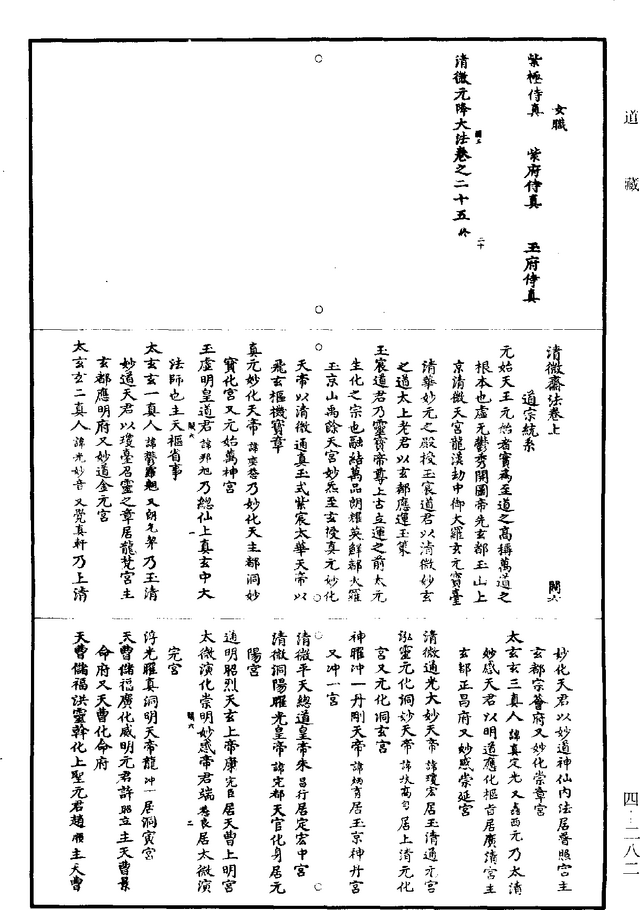 道藏
女職
紫極侍真 紫府侍真 玉府侍真
清微元降大法卷之二十五終
關五
二十
清微齋法卷上
關六
道宗統系
元始天王元始者實為至道之高稱萬道之
根本也虛无鬱秀開圖帝先玄都玉山上
京清微天宮龍漢劫中御大羅玄元寶臺
清華妙元之殿授玉宸道君以清微妙玄
之道太上老君以玄都應運玉策
玉宸道君乃靈寶帝尊上古立運之前太元
生化之宗也融結萬品朗耀英鮮都大羅
玉京山禹餘天宮妙炁至玄授真元妙化
天帝以清微通真玉式紫宸太華天帝以
飛玄樞機寶章
真元妙化天帝乃妙化天主都洞妙
寶化宮又元始萬神宮
玉虛明皇道君諱邪旭乃總仙上真玄中大
法師也主天樞省事
關六
一
太玄玄一真人又朗允界乃玉清
妙道天君以瓊臺召靈之章居龍梵宮主
玄都應明府又妙道金元宮
太玄玄二真人諱光妙音又覺真軒乃上清
妙化天君以妙道神仙内法居普照宮主
玄都宗薈府又妙化崇章宮
太玄玄三真人諱真定光又鑫西元乃太清
妙感天君以明道應化樞旨居廣清宮主
玄都正昌府又妙感崇延宮
清微通光大妙天帝諱瓊宏居玉清通元宮
泓靈元化洞妙天帝諱扶高旬居上清元化
宮又元化洞玄宮
神曜冲一丹剛天帝諱炳育居玉京神丹宮
又冲一宮
清微平天總道皇帝朱昌行居定宏中宮
清微洞陽曜光皇帝諱定都天官化身居元
陽宮
通明昭烈天玄上帝康完臣居天曹上明宮
太微演化崇明妙感帝君端愁良居太微演
關六
二
完宮
浮光曜真洞明天帝龍冲一居洞寅宮
天曹儲福廣化威明元君許昭立主天曹景
命府又天曹化命府
天曹儲福洪靈幹化上聖元君趙主天曹
四·二八二